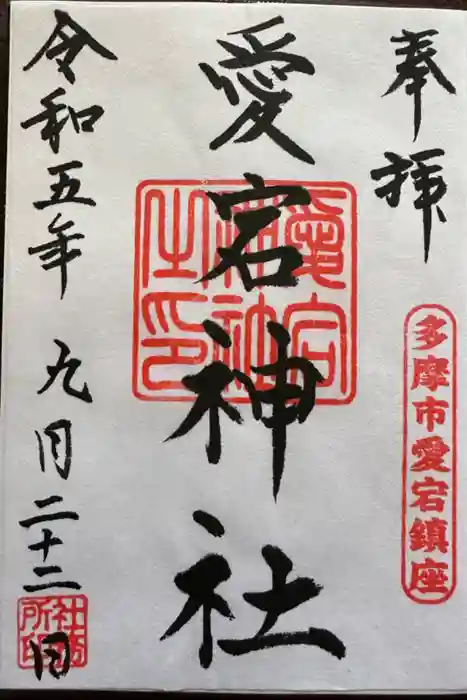 奉拝
多摩市愛宕鎮座
愛宕神社
愛宕神社之印
令和五年九月二十二日